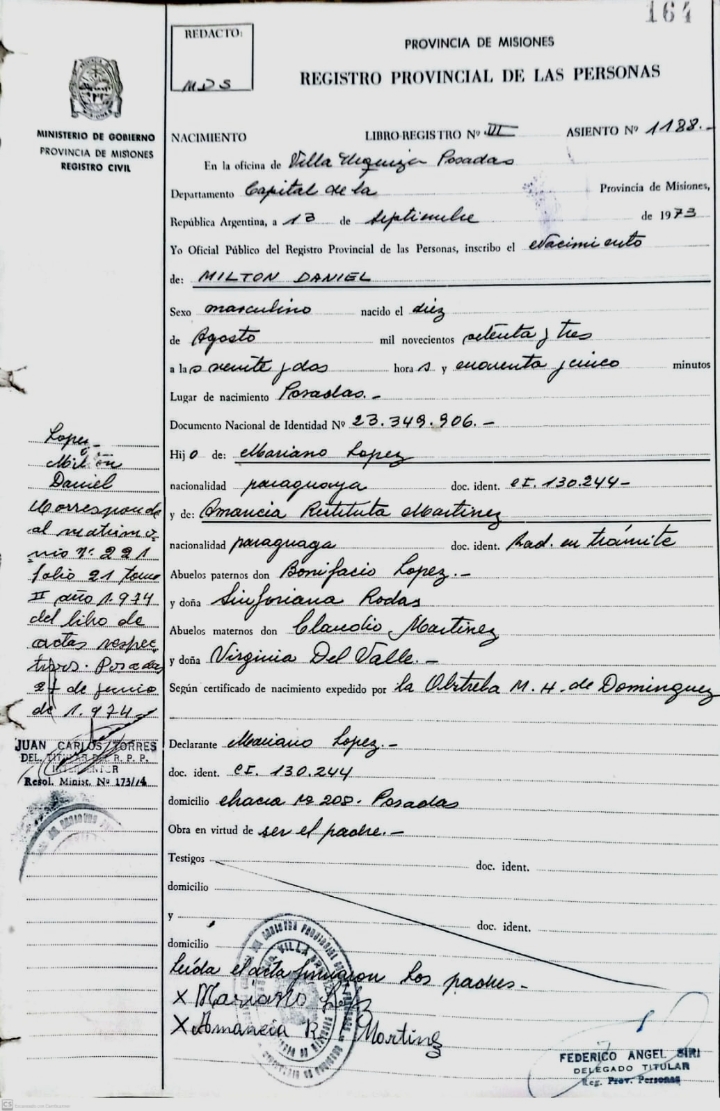 164
REDACTO:
MDS
PROVINCIA DE MISIONES
REGISTRO PROVINCIAL DE LAS PERSONAS
MINISTERIO DE GOBIERNO
PROVINCIA DE MISIONES
REGISTRO CIVIL
NACIMIENTO LIBRO-REGISTRO Nº III ASIENTO Nº 1188.-
En la oficina de Villa Urquiza Posadas
Departamento Capital de la Provincia de Misiones,
República Argentina, a 13 de Septiembre de 1973
Yo Oficial Público del Registro Provincial de las Personas, inscribo el Nacimiento
de: MILTON DANIEL
Sexo masculino nacido el diez
de Agosto mil novecientos setenta y tres
a las veinte y dos horas y cuarenta y cinco minutos
Lugar de nacimiento Posadas.-
Documento Nacional de Identidad Nº 23.349.906.-
Hijo de: Mariano Lopez
nacionalidad paraguaya doc. ident. CI. 130.244-
y de: Amancia Restituta Martinez
nacionalidad paraguaya doc. ident. Rad. en trámite
Abuelos paternos don Bonifacio Lopez.-
y doña Sinforiana Rodas
Abuelos maternos don Claudio Martinez
y doña Virginia Del Valle.-
Según certificado de nacimiento expedido por la Obstreta M. H. de Dominguez
Declarante Mariano Lopez.-
doc. ident. CI. 130.244
domicilio chacra Nº 208. Posadas
Obra en virtud de ser el padre.-
Testigos doc. ident.
domicilio
y doc. ident.
domicilio
Leída el acta firmaron los padres-
X Mariano Lopez
X Amancia R. Martinez
Lopez
Milton
Daniel
Corresponde
al matrimo
nio nº 221
folio 21 tomo
II año 1.974
del libro de
actas respec
tivos. Posadas
27 de junio
de 1.974-
JUAN CARLOS TORRES
DEL. TITULAR R. P. P.
Resol. Minist. Nº 173/74
FEDERICO ANGEL SIRI
DELEGADO TITULAR
Reg. Prov. Personas
CS